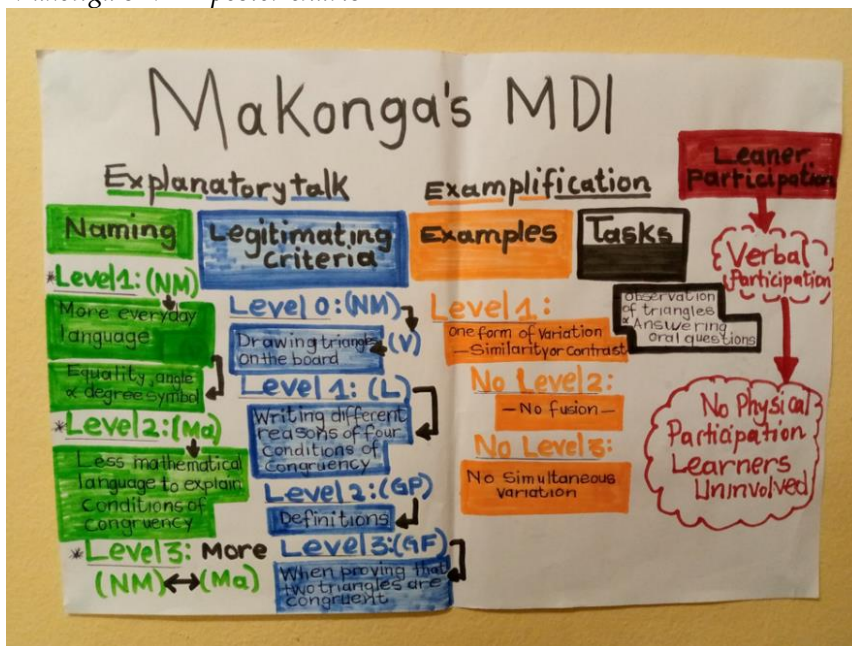 Makonga's MDI
Explanatory talk
Naming
*Level 1: (NM)
More everyday
language
Equality, angle
& degree symbol
*Level 2: (Ma)
Less mathematical
language to explain
conditions of
congruency
*Level 3: More
(NM)↔(Ma)
Legitimating
Criteria
Level 0: (NM)
Drawing triangles
on the board
(V)
Level 1: (L)
Writing different
reasons of four
Conditions of
Congruency
Level 2: (GP)
Definitions
Level 3: (GF)
When proving that
two triangles are
congruent
Examplification
Examples
Level 1:
One form of variation
—Similarity or contrast
No Level 2:
—No fusion—
No Level 3:
No Simultaneous
variation
Tasks
Observation
of triangles
& Answering
oral questions
Leaner
Participation
Verbal
Participation
No Physical
Participation
Learners
Uninvolved